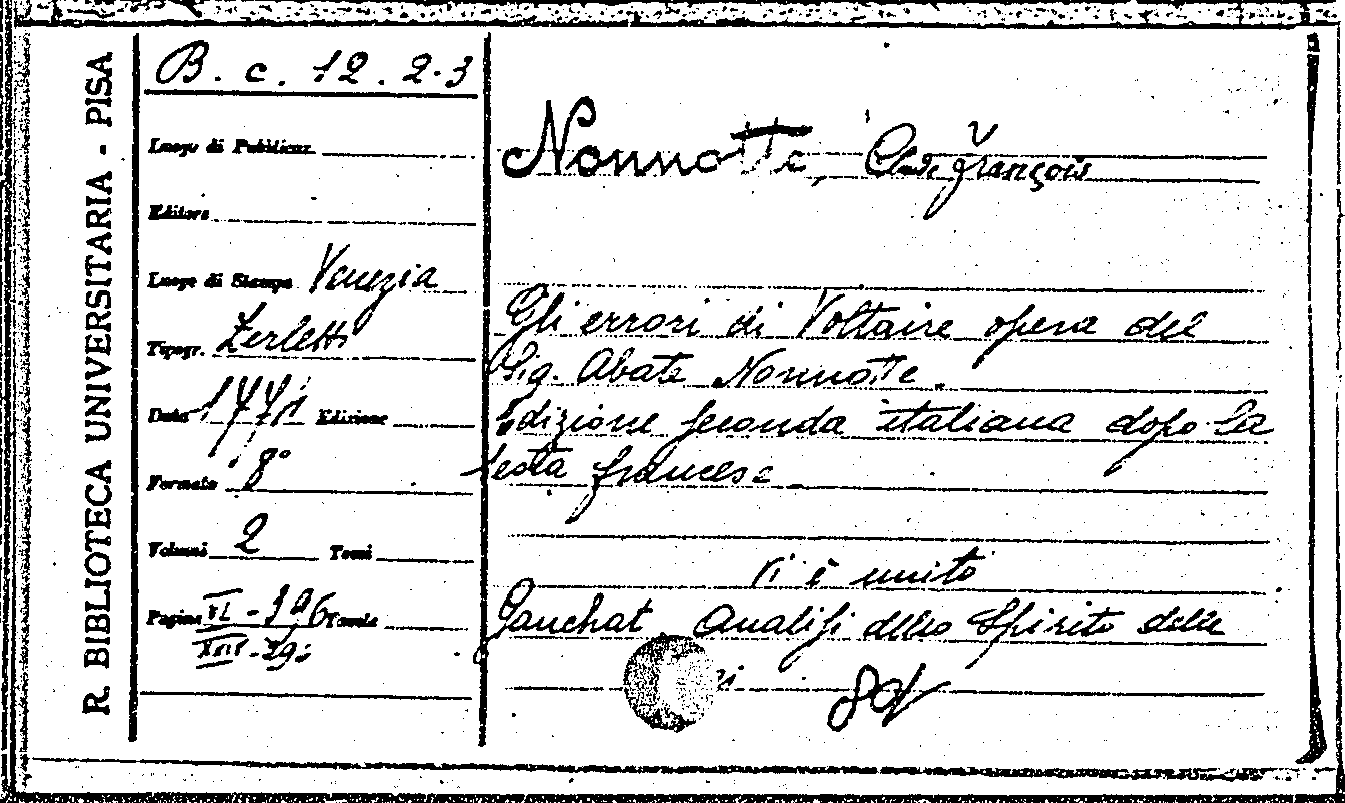 R. BIBLIOTECA UNIVERSITARIA - PISA
B. c. 12. 2-3
Luogo di Pubblicaz.
Editore
Luogo di Stampa Venezia
Tipogr. Zerletti
Data Edizione
Formato 8°
Volumi 2 Tomi
Pagine XI - 396 Tavole
XIII -
Nonnotte, Claude François
Gli errori di Voltaire opera del
Sig. Abate Nonnotte.
Edizione seconda italiana dopo la
sesta francese
Vi è unito
Gauchat Analisi dello Spirito delle